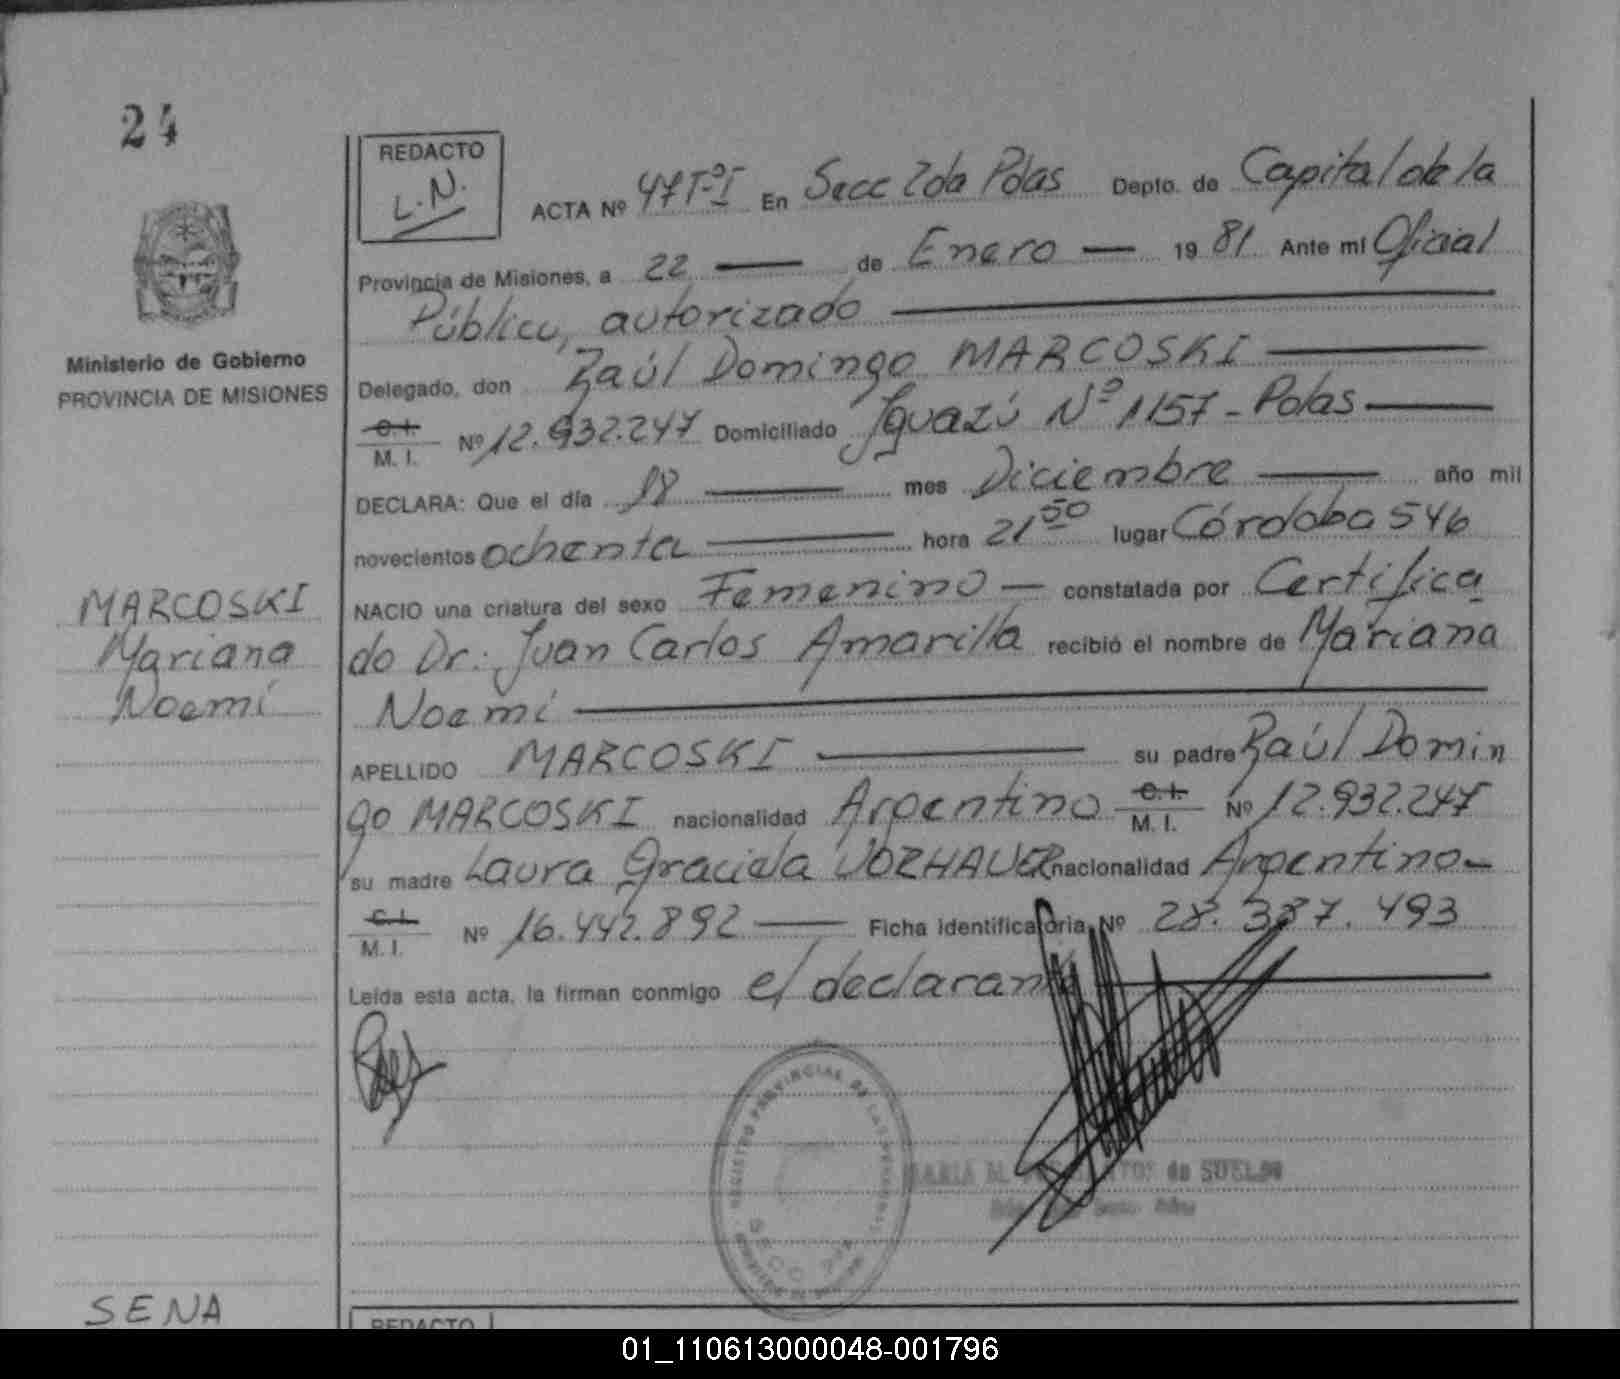 24
REDACTO
L.N.
ACTA Nº 47 Tº I En Secc 2da Pdas Depto. de Capital de la
Provincia de Misiones, a 22 — de Enero — 19 81 Ante mí Oficial
Público, autorizado
Ministerio de Gobierno
PROVINCIA DE MISIONES
Delegado, don Raúl Domingo MARCOSKI
C.I. M. I. Nº 12.932.247 Domiciliado Iguazú Nº 1157 - Pdas
DECLARA: Que el día 18 — mes Diciembre — año mil
novecientos ochenta — hora 21 50 lugar Córdoba 546
NACIO una criatura del sexo Femenino — constatada por Certifica
do Dr. Juan Carlos Amarilla recibió el nombre de Mariana
Noemí
MARCOSKI
Mariana
Noemí
APELLIDO MARCOSKI — su padre Raúl Domin
go MARCOSKI nacionalidad Argentino C.I. M. I. Nº 12.932.247
su madre Laura Graciela nacionalidad Argentino
C.I. M. I. Nº 16.442.892 — Ficha identificatoria Nº 28.387.493
Leída esta acta, la firman conmigo el declarante
REGISTRO PROVINCIAL DE LAS PERSONAS
SECC 2da
MARIA de SUELDO
SENA
REDACTO
01_110613000048-001796